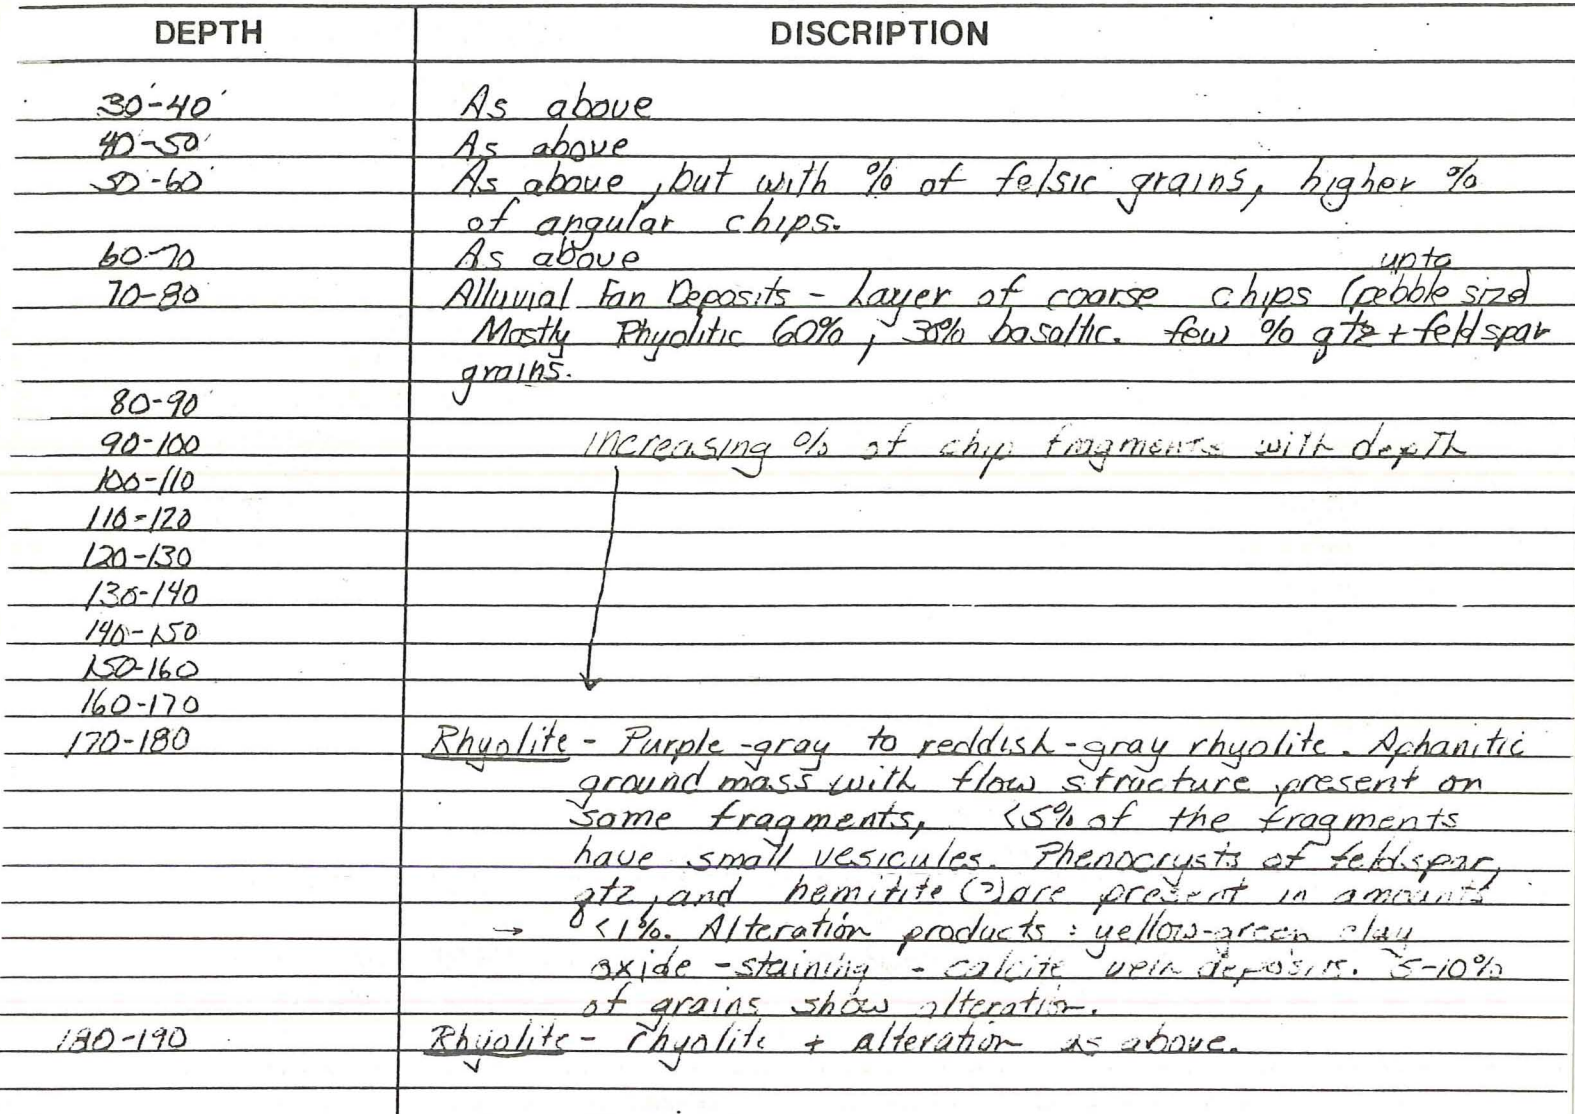 DEPTH DISCRIPTION
30'-40' As above
40-50' As above
50'-60' As above, but with % of felsic grains, higher %
of angular chips.
60-70 As above upto
70-80 Alluvial Fan Deposits - Layer of coarse chips (pebble size)
Mostly Rhyolitic 60%, 30% basaltic. few % qtz + feldspar
grains.
80-90'
90-100 increasing % of chip fragments with depth
100-110
110-120
120-130
130-140
140-150
150-160
160-170
170-180 Rhyolite - Purple-gray to reddish-gray rhyolite. Aphanitic
ground mass with flow structure present on
some fragments, <5% of the fragments
have small vesicules. Phenocrysts of feldspar,
qtz, and hemitite (?) are present in amounts
→ <1%. Alteration products : yellow-green clay
oxide - staining - calcite vein deposits. 5-10%
of grains show alteration.
180-190 Rhyolite - rhyolite + alteration as above.